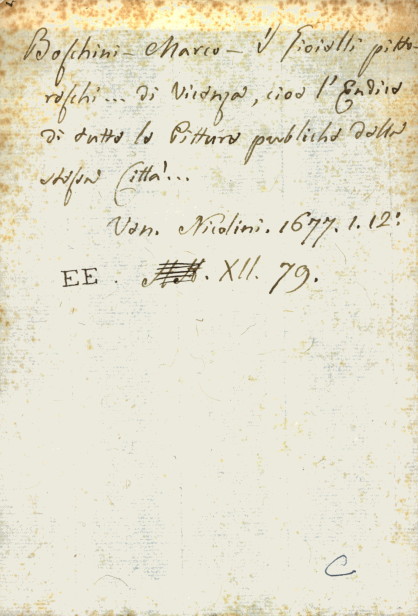 Boschini - Marco - I Gioielli pitto-
reschi... di Vicenza, cioè l'Endice
di tutte le Pitture publiche della
stessa Città...
Ven. Nicolini. 1677. 1. 12°.
EE. . XII. 79.
C